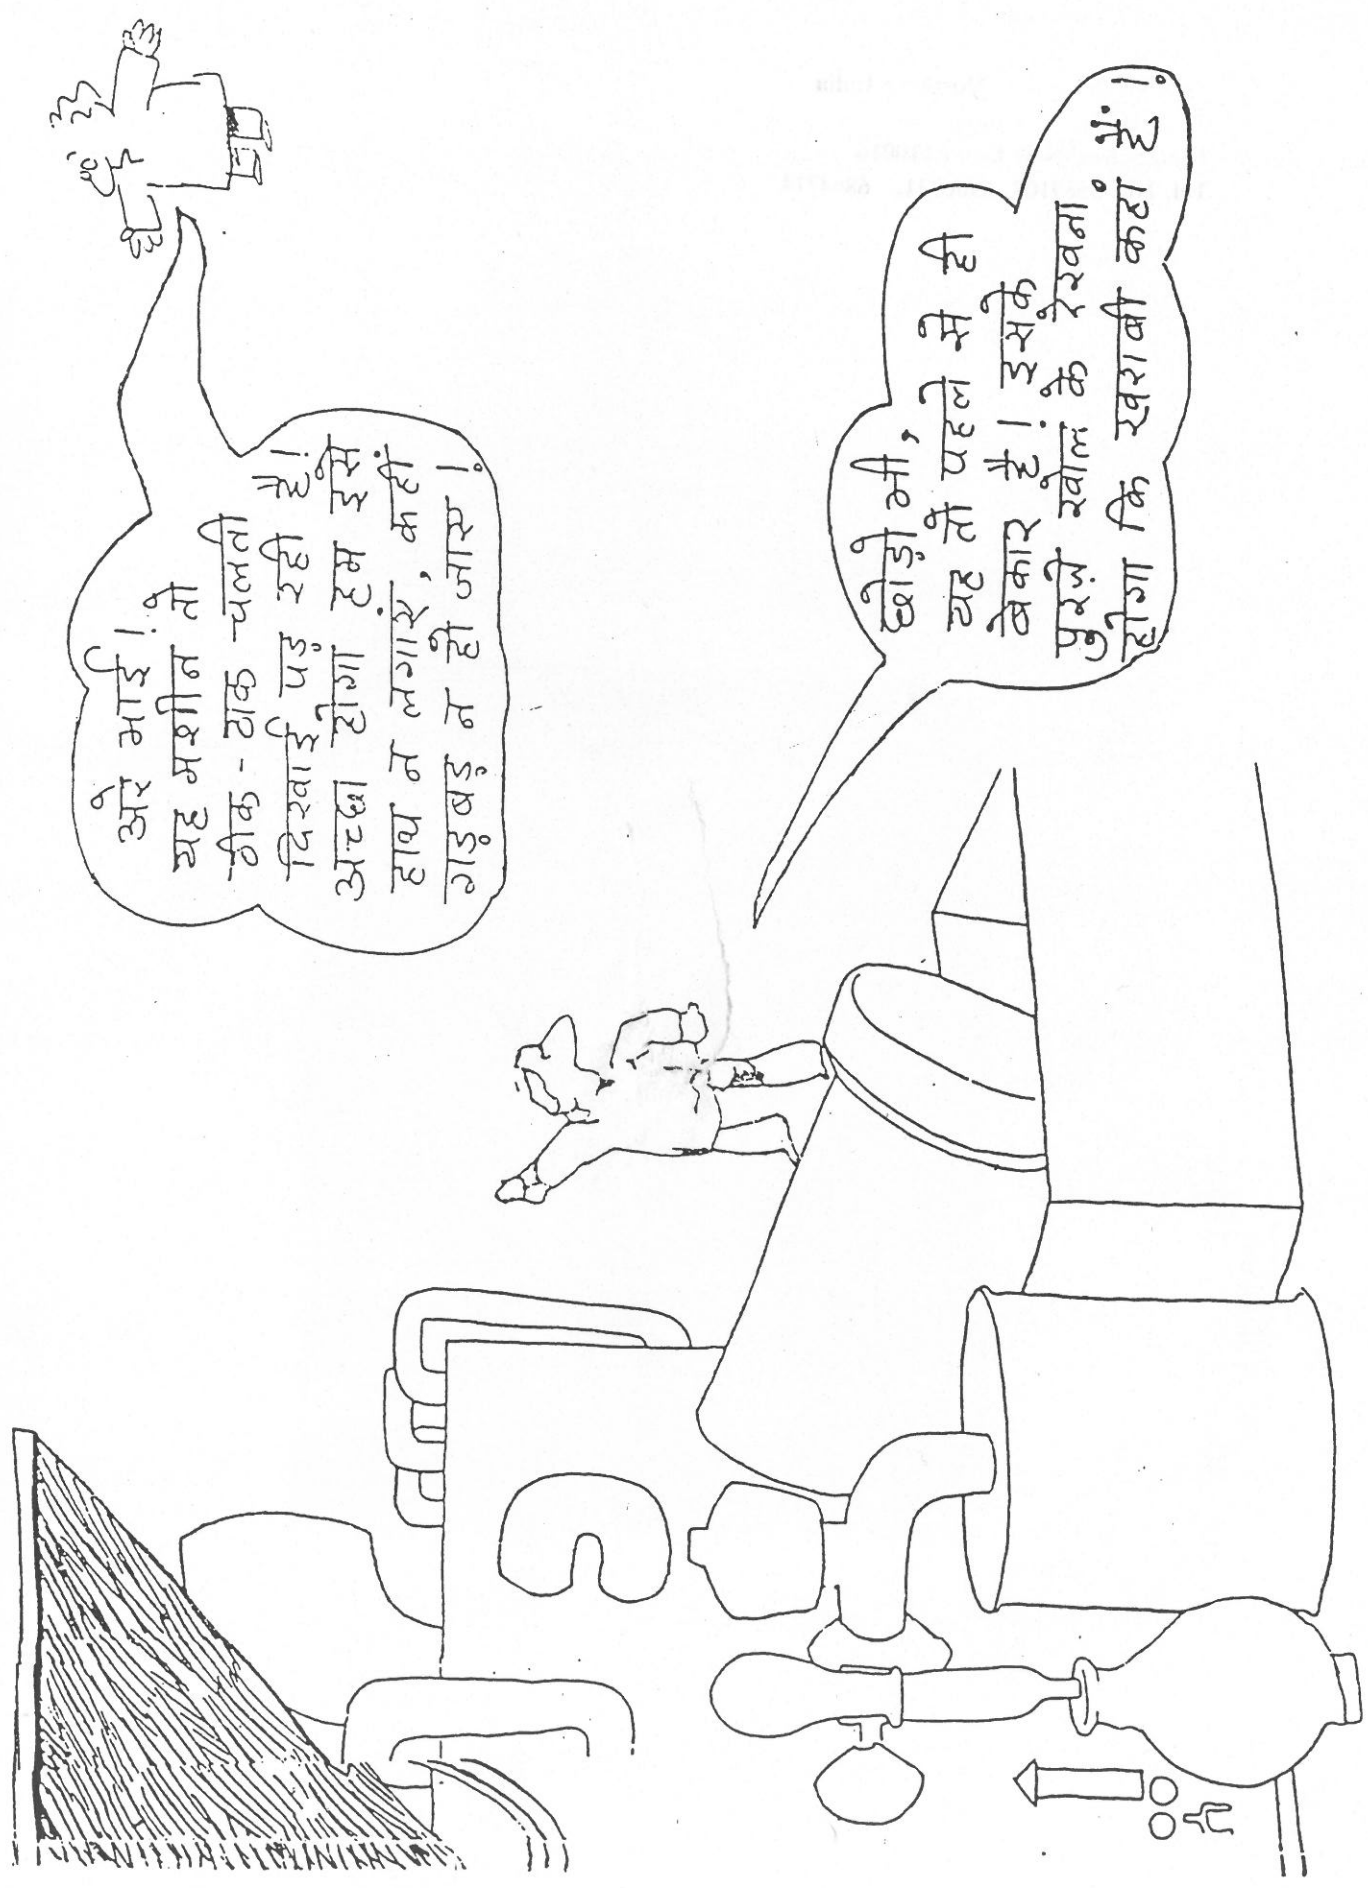 अरे भाई!
यह मशीन तो
ठीक-ठाक चलती
दिखाई पड़ रही है!
अच्छा होगा हम इसे
हाथ न लगाएं, कहीं
गड़बड़ न हो जाए!
छोड़ो भी,
यह तो पहले से ही
बेकार है। इसके
पुरज़े खोल के देखना
होगा कि खराबी कहां है!